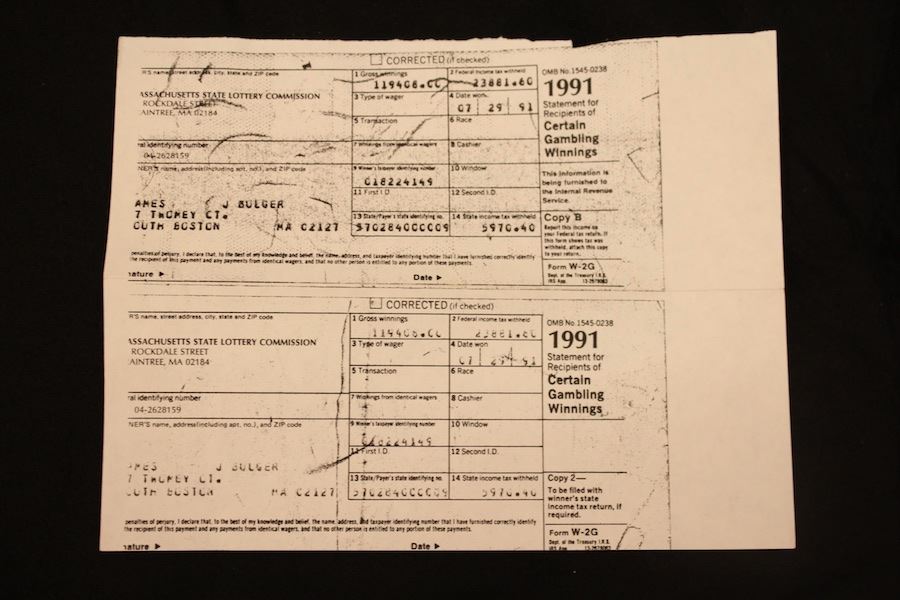 CORRECTED (if checked)
R'S name, street address, city, state and ZIP code
ASSACHUSETTS STATE LOTTERY COMMISSION
ROCKDALE STREET
AINTREE, MA 02184
ral identifying number
04-2628159
NER'S name, address(including apt. no.), and ZIP code
AMES J BULGER
7 THOMEY CT.
OUTH BOSTON MA 02127
1 Gross winnings
119408.00
2 Federal income tax withheld
23881.60
3 Type of wager
4 Date won
07 29 91
5 Transaction
6 Race
7 Winnings from identical wagers
8 Cashier
9 Winner's taxpayer identifying number
018224149
10 Window
11 First I.D.
12 Second I.D.
13 State/Payer's state identifying no.
570284000009
14 State income tax withheld
5970.40
OMB No. 1545-0238
1991
Statement for
Recipients of
Certain
Gambling
Winnings
This information is
being furnished to
the Internal Revenue
Service.
Copy B
Report this income on
your Federal tax return. If
this form shows tax was
withheld, attach this copy
to your return.
Form W-2G
Dept. of the Treasury I.R.S.
IRS App.
penalties of perjury, I declare that, to the best of my knowledge and belief, the name, address, and taxpayer identifying number that I have furnished correctly identify
the recipient of this payment and any payments from identical wagers, and that no other person is entitled to any portion of these payments.
nature ▶ Date ▶
CORRECTED (if checked)
R'S name, street address, city, state and ZIP code
ASSACHUSETTS STATE LOTTERY COMMISSION
ROCKDALE STREET
AINTREE, MA 02184
ral identifying number
04-2628159
NER'S name, address(including apt. no.), and ZIP code
AMES J BULGER
7 THOMEY CT.
OUTH BOSTON MA 02127
1 Gross winnings
119408.00
2 Federal income tax withheld
23881.60
3 Type of wager
4 Date won
07 29 91
5 Transaction
6 Race
7 Winnings from identical wagers
8 Cashier
9 Winner's taxpayer identifying number
018224149
10 Window
11 First I.D.
12 Second I.D.
13 State/Payer's state identifying no.
570284000009
14 State income tax withheld
5970.40
OMB No. 1545-0238
1991
Statement for
Recipients of
Certain
Gambling
Winnings
Copy 2—
To be filed with
winner's state
income tax return, if
required.
Form W-2G
Dept. of the Treasury I.R.S.
IRS App.
penalties of perjury, I declare that, to the best of my knowledge and belief, the name, address, and taxpayer identifying number that I have furnished correctly identify
the recipient of this payment and any payments from identical wagers, and that no other person is entitled to any portion of these payments.
nature ▶ Date ▶